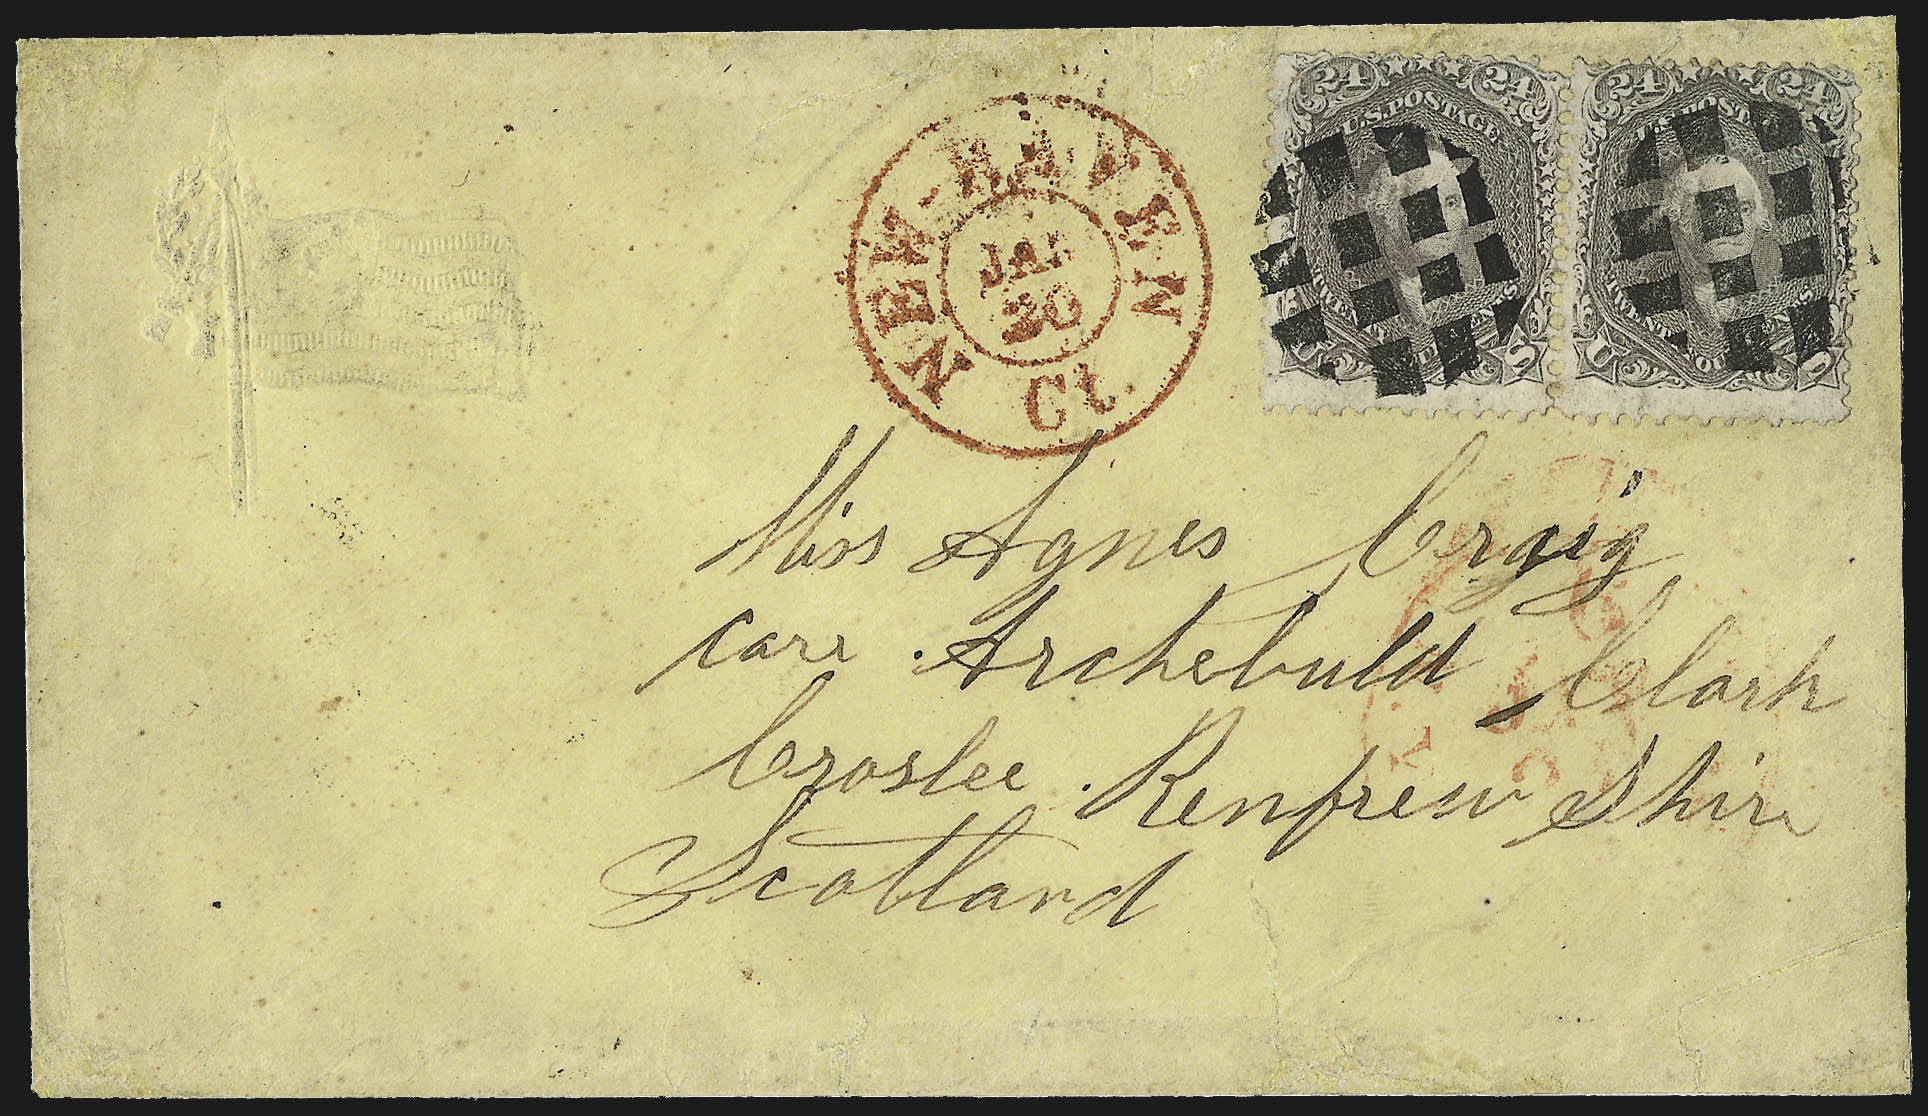 24 24 24 24
U.S. POSTAGE U.S. POST
NEW-HAVEN
JAN
20
Ct.
U S
Miss Agnes Craig
care Archebuld Clark
Croslee Renfrew Shire
Scotland